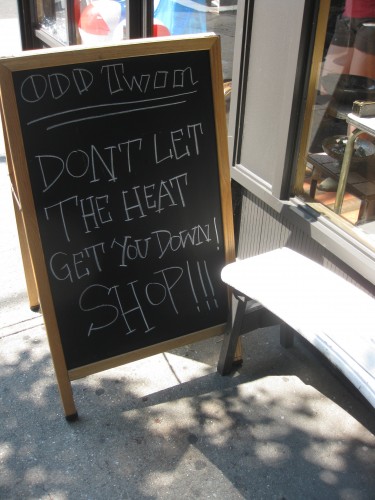 ODD TWON
DON'T LET
THE HEAT
GET YOU DOWN!
SHOP!!!